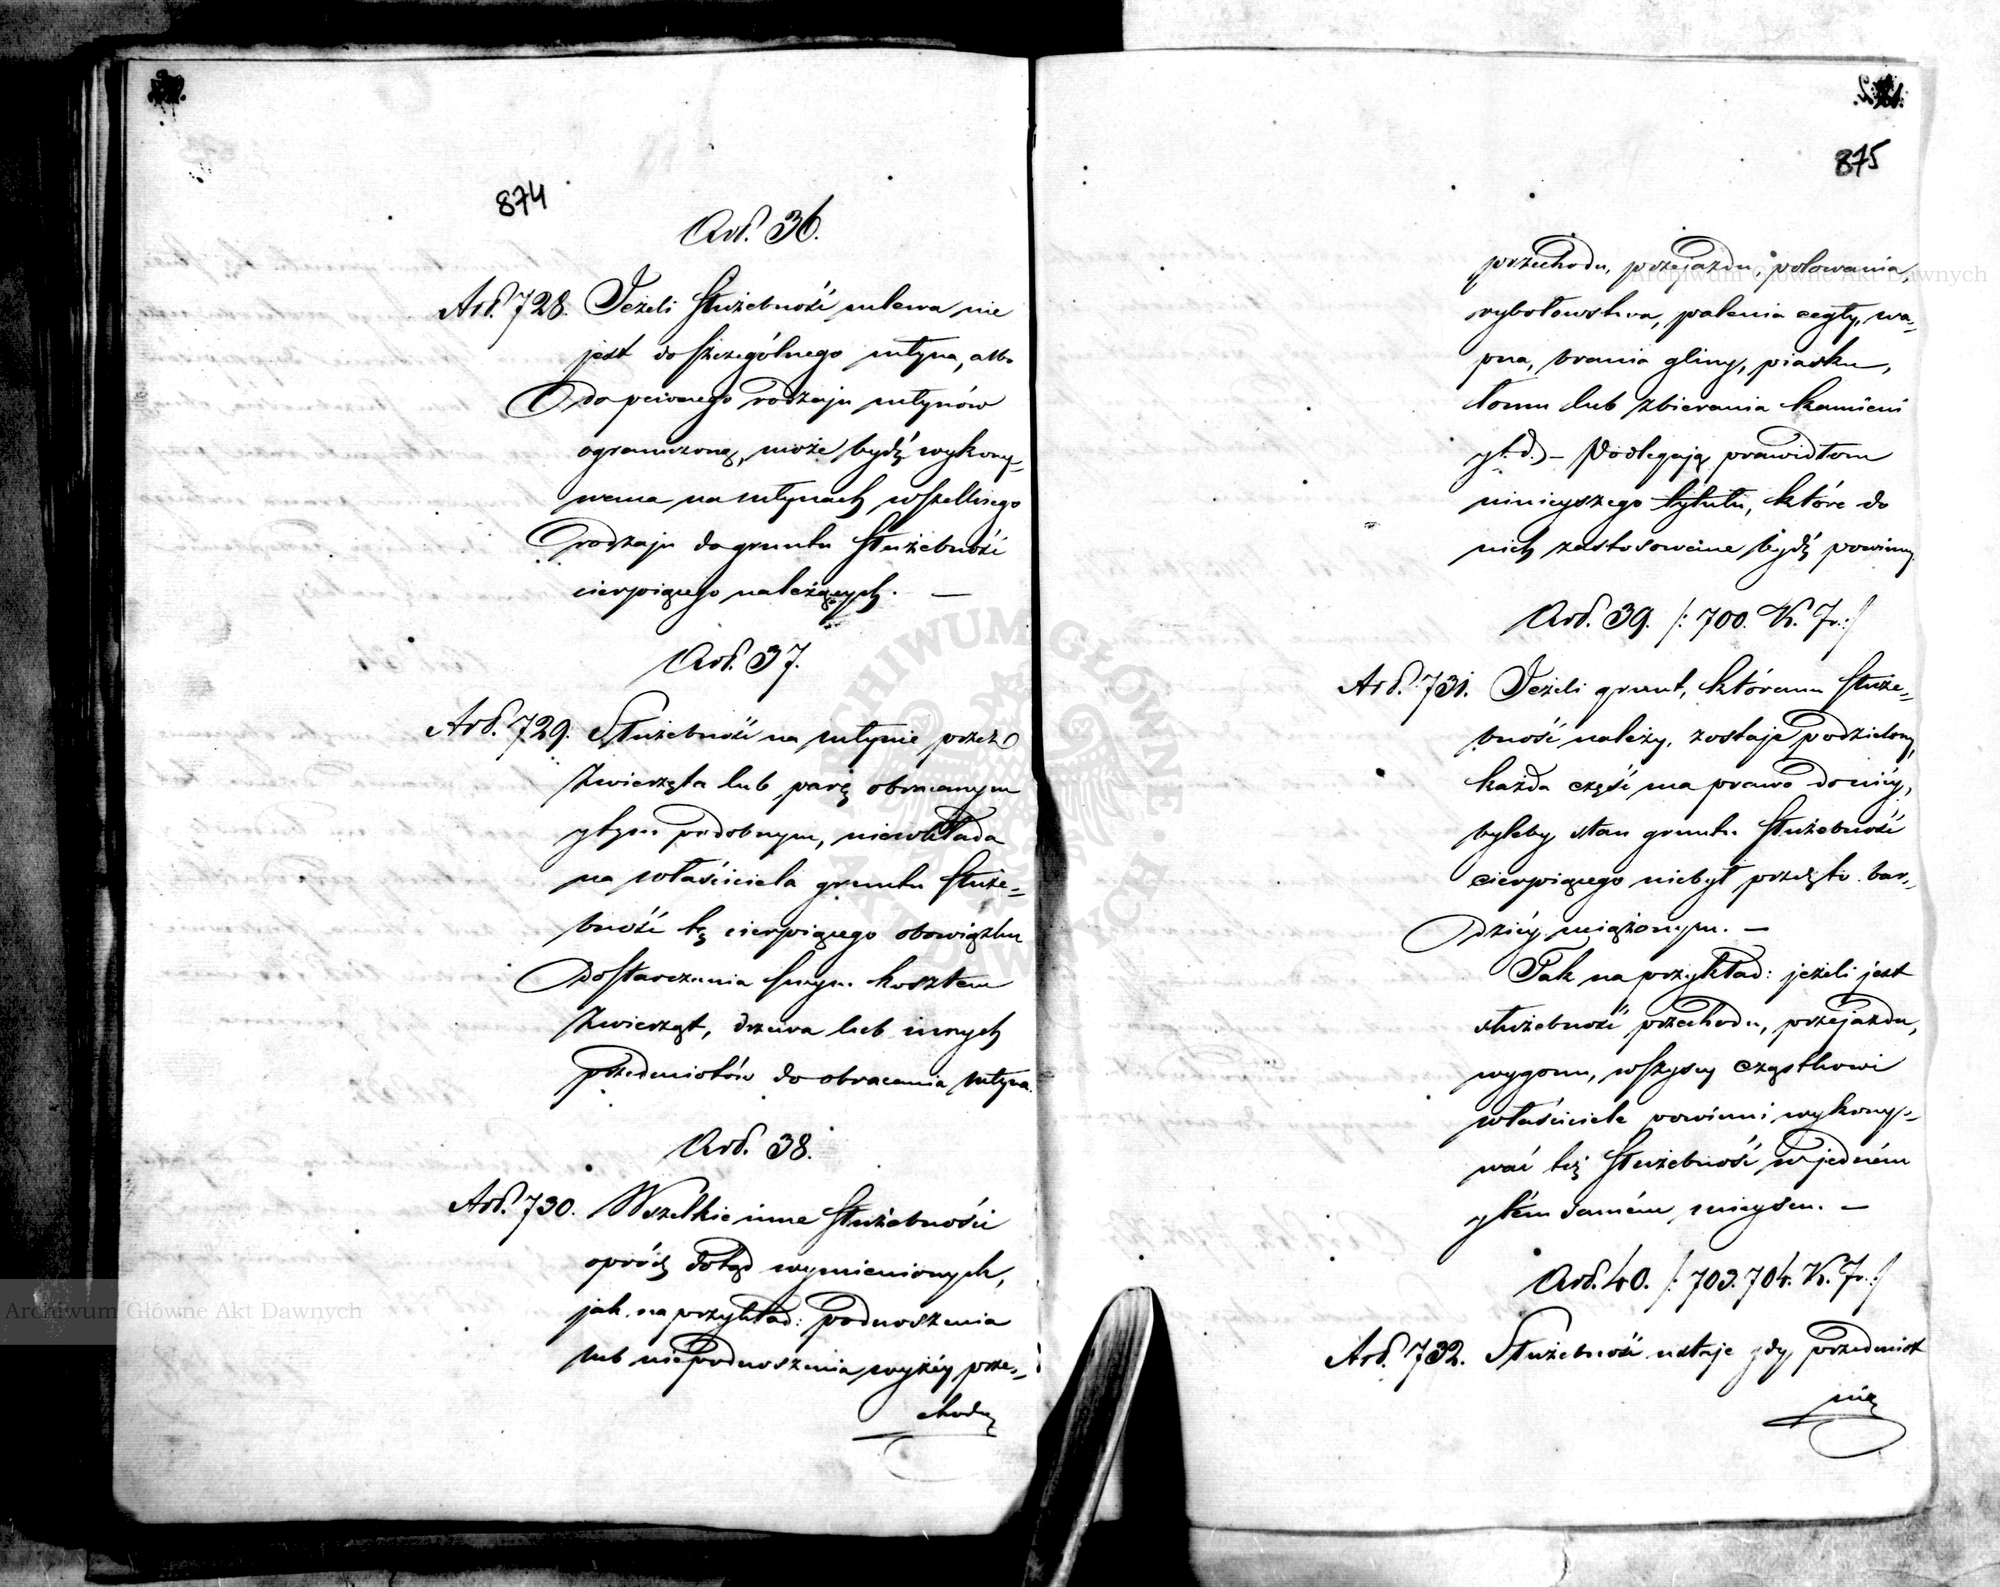 874
Art. 36.
Art. 728. Jeżeli służebność mlewa nie
jest do szczególnego młyna, albo
do pewnego rodzaju młynów
ograniczoną, może bydź wykony-
wana na młynach wszelkiego
rodzaju do gruntu służebność
cierpiącego należących. —
Art. 37.
Art. 729. Służebność na młynie przez
zwierzęta lub parę obracanym
y tym podobnym, niewkłada
na właściciela gruntu służe-
bność tę cierpiącego obowiązku
dostarczania swym kosztem
zwierząt, drzewa lub innych
przedmiotów do obracania młyna.
Art. 38.
Art. 730. Wszelkie inne służebności
oprócz dotąd wymienionych,
jak na przykład: podnoszenia
lub niepodnoszenia wyżéy prze-
chodu
875
przechodu, przejazdu, polowania,
rybołowstwa, palenia cegły, wa-
pna, brania gliny, piasku,
łomu lub zbierania kamieni
y t. d. — Podlegają prawidłom
ninieyszego tytułu, które do
nich zastosowane bydź powinny.
Art. 39. /: 700. K. Fr. :/
Art. 731. Jeżeli grunt, któremu służe-
bność należy, zostaje podzielony,
każda część ma prawo do niéy,
byleby stan gruntu służebność
cierpiącego niebył przez to bar-
dziéy uciążonym. —
Tak na przykład: jeżeli jest
służebność przechodu, przejazdu,
wygonu, wszyscy cząstkowi
właściciele powinni wykony-
wać tęż służebność w jedném
y tém samém mieyscu. —
Art. 40. /: 703. 704. K. Fr. :/
Art. 732. Służebność ustaje gdy przedmiot
niéy
Archiwum Główne Akt Dawnych
Archiwum Główne Akt Dawnych
ARCHIWUM GŁÓWNE AKT DAWNYCH